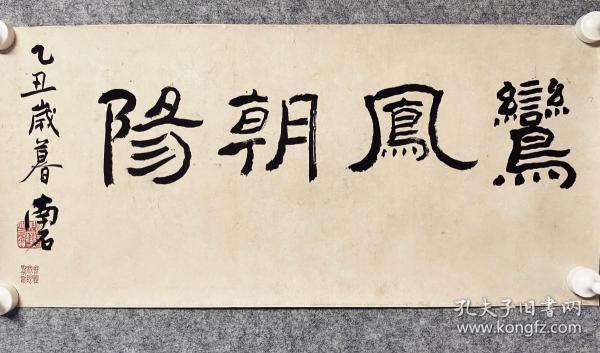 鸞鳳朝陽
乙丑歲暮 南石
孔夫子旧书网
www.kongfz.com